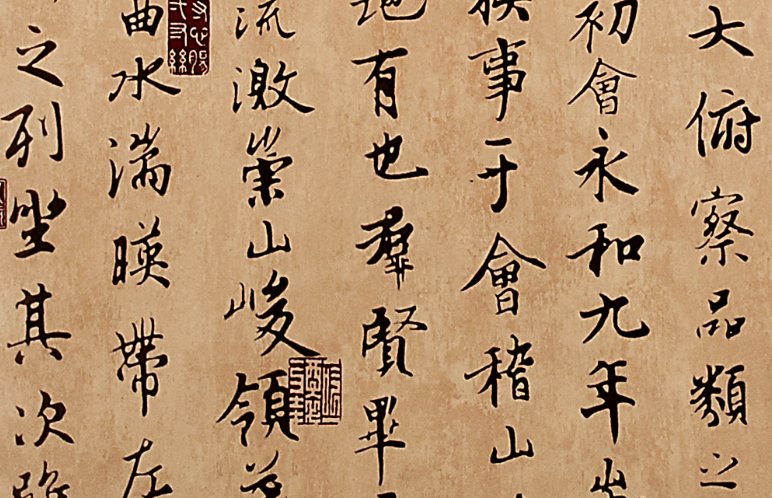 大俯察品類之
初會永和九年
稧事于會稽山
地有也羣賢畢
流激崇山峻領
曲水湍暎帶左
之列坐其次